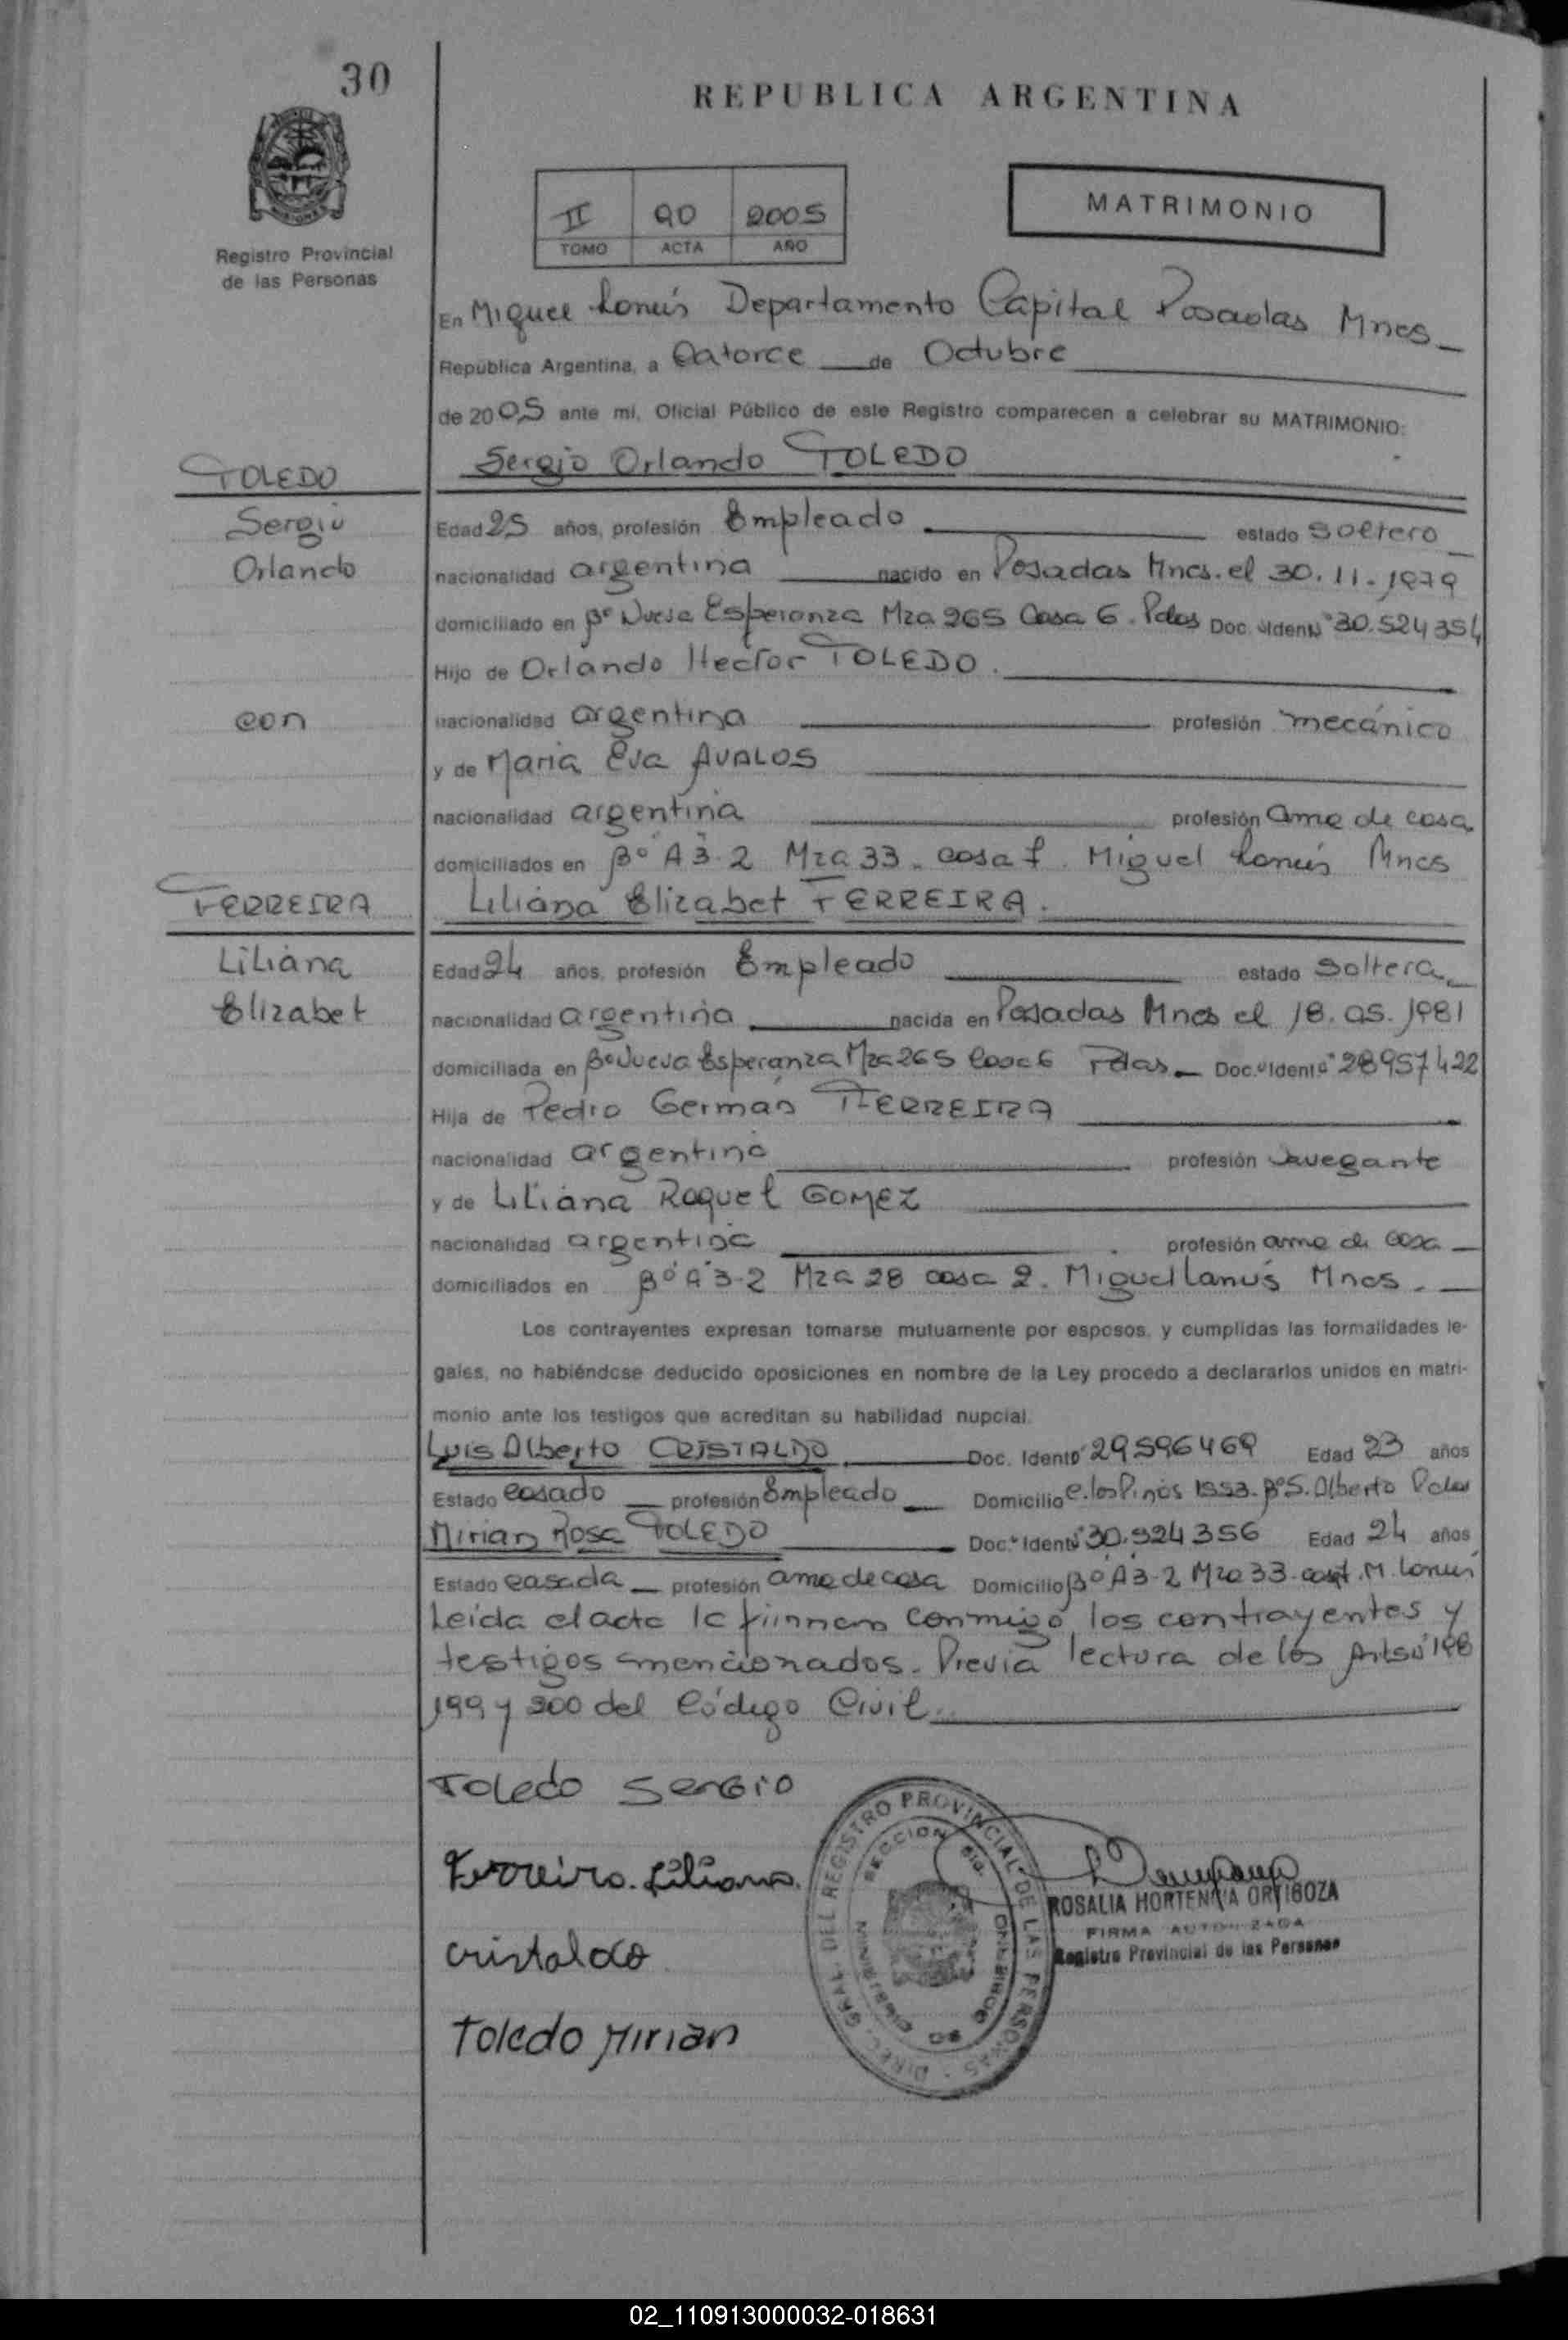 30
REPUBLICA ARGENTINA
MATRIMONIO
II 90 2005
TOMO ACTA AÑO
Registro Provincial
de las Personas
En Miguel Lanús Departamento Capital Posadas Mnes
República Argentina, a Catorce de Octubre
de 2005 ante mi, Oficial Público de este Registro comparecen a celebrar su MATRIMONIO:
TOLEDO
Sergio Orlando TOLEDO
Sergio
Orlando
Edad 25 años, profesión Empleado estado Soltero
nacionalidad argentina nacido en Posadas Mnes. el 30.11.1979
domiciliado en Bº Nueva Esperanza Mza 265 Casa 6. Pdas Doc. Ident Nº 30.524354
Hijo de Orlando Hector TOLEDO.
con
nacionalidad argentina profesión mecánico
y de Maria Eva AVALOS
nacionalidad argentina profesión ama de casa
domiciliados en Bº A 3-2 Mza 33. casa Miguel Lanús Mnes
FERREIRA
Liliana Elizabet FERREIRA.
Liliana
Elizabet
Edad 24 años, profesión Empleado estado Soltera
nacionalidad argentina nacida en Posadas Mnes el 18.05.1981
domiciliada en Bº Nueva Esperanza Mza 265 Casa 6 Pdas Doc. Ident Nº 28957422
Hija de Pedro Germán FERREIRA
nacionalidad argentina profesión navegante
y de Liliana Raquel GOMEZ
nacionalidad argentina profesión ama de casa
domiciliados en Bº A 3-2 Mza 28 casa 2. Miguel Lanús Mnes.
Los contrayentes expresan tomarse mutuamente por esposos, y cumplidas las formalidades le-
gales, no habiéndose deducido oposiciones en nombre de la Ley procedo a declararlos unidos en matri-
monio ante los testigos que acreditan su habilidad nupcial.
Luis Alberto CRISTALDO Doc. Ident Nº 29596469 Edad 23 años
Estado casado profesión Empleado Domicilio C. los Pinos 1553. Bº S. Alberto Pdas
Mirian Rosa TOLEDO Doc. Ident Nº 30.524356 Edad 24 años
Estado casada profesión ama de casa Domicilio Bº A 3-2 Mza 33 M. Lanús
Leida el acta la firman conmigo los contrayentes y
testigos mencionados. Previa lectura de los Arts 198
199 y 200 del Código Civil.
Toledo Sergio
Ferreira Liliana.
Cristaldo
Toledo Mirian
DIREC. GRAL. DEL REGISTRO PROVINCIAL DE LAS PERSONAS
ROSALIA HORTENCIA ORTIGOZA
FIRMA AUTORIZADA
Registro Provincial de las Personas
02_110913000032-018631